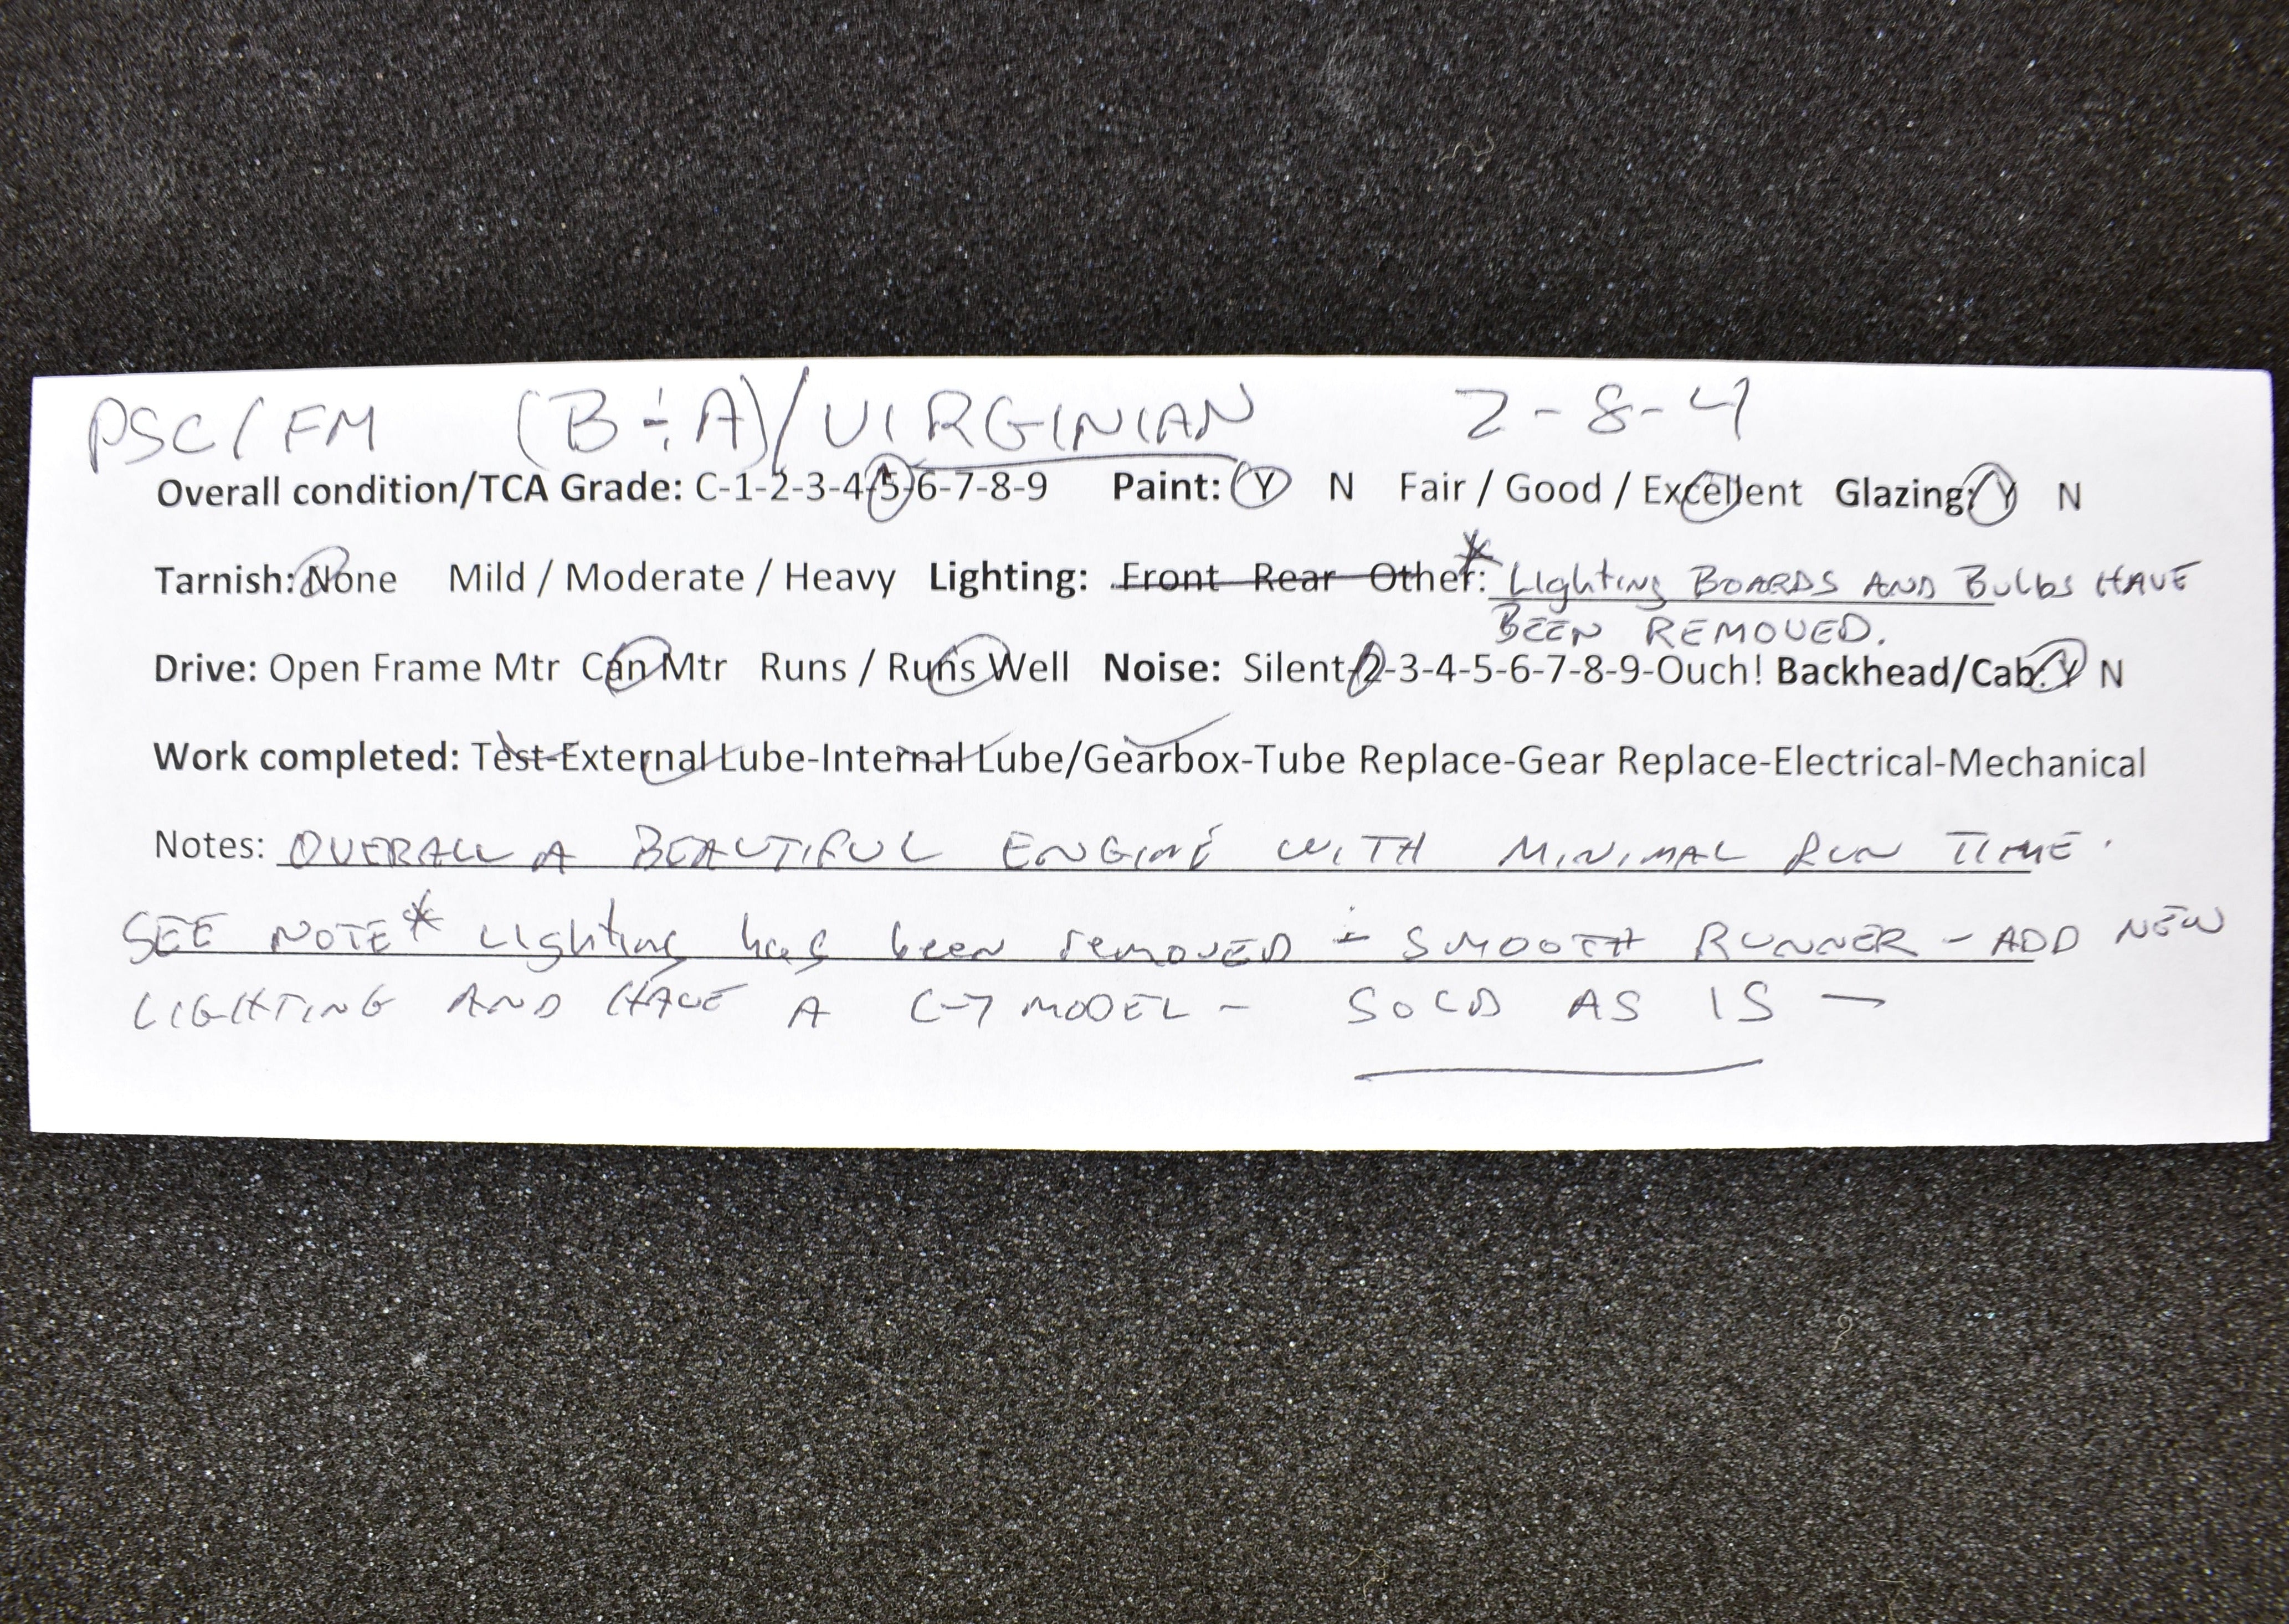 PSC/FM (B÷A)/VIRGINIAN 2-8-4
Overall condition/TCA Grade: C-1-2-3-4-5-6-7-8-9 Paint: Y N Fair / Good / Excellent Glazing: Y N
Tarnish: None Mild / Moderate / Heavy Lighting: Front Rear Other: * Lighting BOARDS AND Bulbs HAVE
BEEN REMOVED.
Drive: Open Frame Mtr Can Mtr Runs / Runs Well Noise: Silent-2-3-4-5-6-7-8-9-Ouch! Backhead/Cab: Y N
Work completed: Test-External Lube-Internal Lube/Gearbox-Tube Replace-Gear Replace-Electrical-Mechanical
Notes: OVERALL A BEAUTIFUL ENGINE WITH MINIMAL RUN TIME.
SEE NOTE* Lighting has been removed - SMOOTH RUNNER - ADD NEW
LIGHTING AND HAVE A C-7 MODEL - SOLD AS IS -